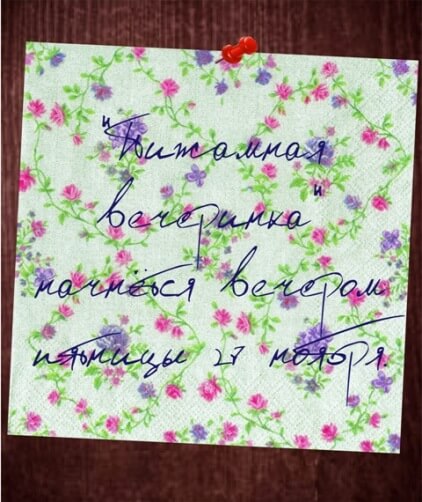 "Пижамная
вечеринка"
начнётся вечером
пятницы 27 ноября.